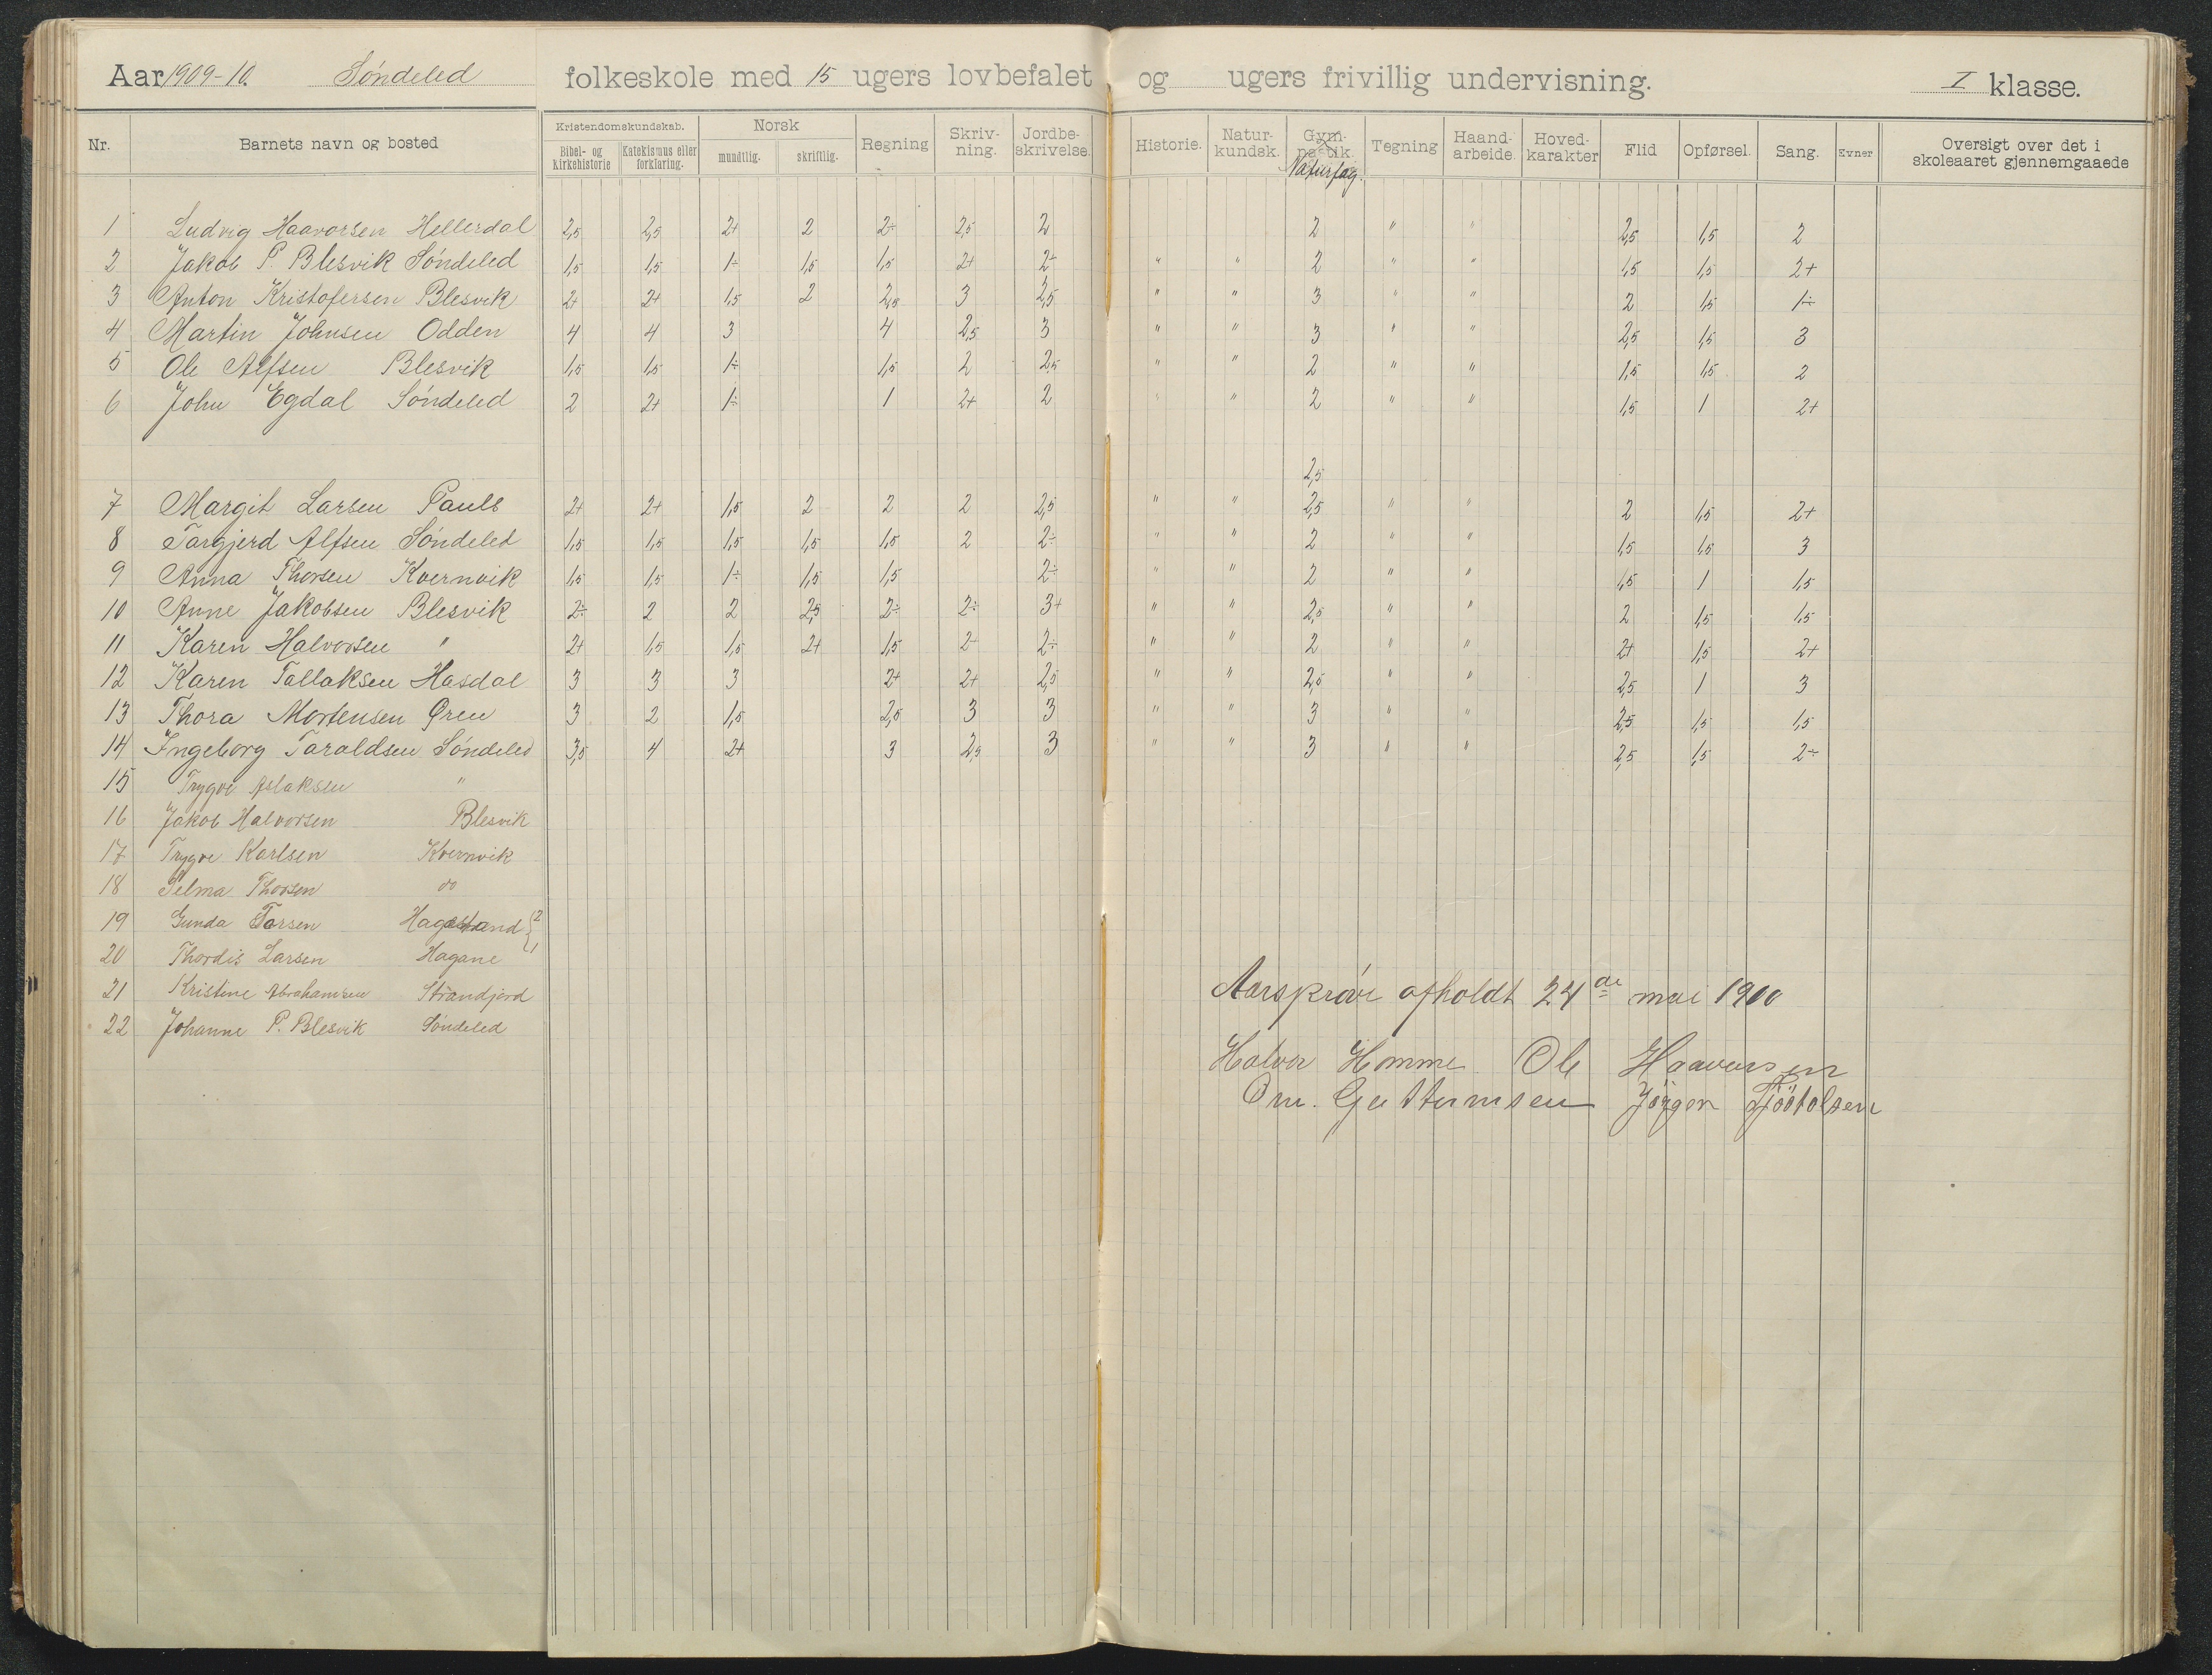 Aar 1909-10. Søndeled folkeskole med 15 ugers lovbefalet og ugers frivillig undervisning. I klasse.
Nr. Barnets navn og bosted Kristendomskundskab. Bibel- og Kirkehistorie Katekismus eller forklaring. Norsk mundtlig. skriftlig. Regning Skriv-ning. Jordbe-skrivelse. Historie. Natur-kundsk. Gym-nastik. Naturfag. Tegning Haand-arbeide. Hoved-karakter Flid Opførsel. Sang. Evner Oversigt over det i skoleaaret gjennemgaaede
1 Ludvig Haavorsen Hellerdal 2,5 2,5 2+ 2 2÷ 2,5 2 2 " " 2,5 1,5 2
2 Jakob P. Blesvik Søndeled 1,5 1,5 1÷ 1,5 1,5 2+ 2÷ " " 2 " " 1,5 1,5 2+
3 Anton Kristofersen Blesvik 2+ 2+ 1,5 2 2,5 3 2,5 " " 3 " " 2 1,5 1÷
4 Martin Johnsen Odden 4 4 3 4 2,5 3 " " 3 " " 2,5 1,5 3
5 Ole Alfsen Blesvik 1,5 1,5 1÷ 1,5 2 2,5 " " 2 " " 1,5 1,5 2
6 John Egdal Søndeled 2 2+ 1÷ 1 2+ 2 " " 2 " " 1,5 1 2+
2,5
7 Margit Larsen Pauls 2+ 2+ 1,5 2 2 2 2,5 " " 2,5 " " 2 1,5 2+
8 Targjerd Alfsen Søndeled 1,5 1,5 1,5 1,5 1,5 2 2÷ " " 2 " " 1,5 1,5 3
9 Anna Thorsen Kvernvik 1,5 1,5 1÷ 1,5 1,5 2÷ " " 2 " " 1,5 1 1,5
10 Anne Jakobsen Blesvik 2÷ 2 2 2,5 2÷ 2÷ 3+ " " 2,5 " " 2 1,5 1,5
11 Karen Halvorsen " 2+ 1,5 1,5 2+ 1,5 2 2÷ " " 2 " " 2+ 1,5 2+
12 Karen Tallaksen Hasdal 3 3 3 2+ 2+ 2,5 " " 2,5 " " 2,5 1 3
13 Thora Mortensen Øren 3 2 1,5 2,5 3 3 " " 3 " " 2,5 1,5 1,5
14 Ingeborg Taraldsen Søndeled 3,5 4 2+ 3 2,5 3 " " 3 " " 2,5 1,5 2÷
15 Trygve Aslaksen "
16 Jakob Halvorsen Blesvik
17 Trygve Karlsen Kvernvik
18 Selma Thorsen do
19 Gunda Torsen Hagestrand 2
20 Thordis Larsen Hagane 1
21 Kristine Abrahamsen Strandjord
22 Johanne P. Blesvik Søndeled
Aarsprøve afholdt 24de mai 1910
Halvor Homme Ole Haavorsen
Om. Guttormsen Jörgen Tjöstolsen